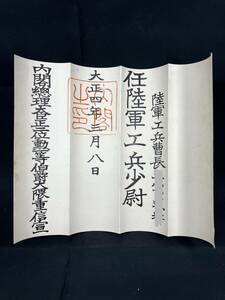 陸軍工兵曹長
任陸軍工兵少尉
大正四年三月八日
内閣總理大臣正二位勲一等伯爵大隈重信宣